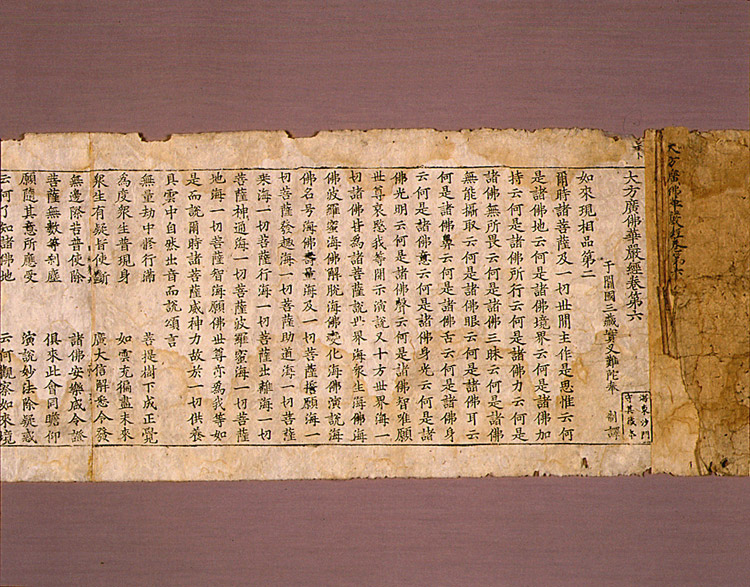 大方廣佛華嚴經卷第六
大方廣佛華嚴經卷第六
于闐國三藏實叉難陁奉 制譯
海東沙門
守其藏本
如來現相品第二
爾時諸菩薩及一切世間主作是思惟云何
是諸佛地云何是諸佛境界云何是諸佛加
持云何是諸佛所行云何是諸佛力云何是
諸佛無所畏云何是諸佛三昧云何是諸佛
無能攝取云何是諸佛眼云何是諸佛耳云
何是諸佛鼻云何是諸佛舌云何是諸佛身
云何是諸佛意云何是諸佛身光云何是諸
佛光明云何是諸佛聲云何是諸佛智唯願
世尊哀愍我等開示演說又十方世界海一
切諸佛皆為諸菩薩說世界海衆生海佛海
佛波羅蜜海佛解脫海佛變化海佛演說海
佛名号海佛壽量海及一切菩薩誓願海一
切菩薩發趣海一切菩薩助道海一切菩薩
乘海一切菩薩行海一切菩薩出離海一切
菩薩神通海一切菩薩波羅蜜海一切菩薩
地海一切菩薩智海願佛世尊亦為我等如
是而說爾時諸菩薩威神力故於一切供養
具雲中自然出音而說頌言
無量劫中修行滿 菩提樹下成正覺
為度衆生普現身 如雲充徧盡未來
衆生有疑皆使斷 廣大信解悉令發
無邊際苦普使除 諸佛安樂咸令證
菩薩無數等剎塵 俱來此會同瞻仰
願隨其意所應受 演說妙法除疑惑
云何了知諸佛地 云何觀察如來境